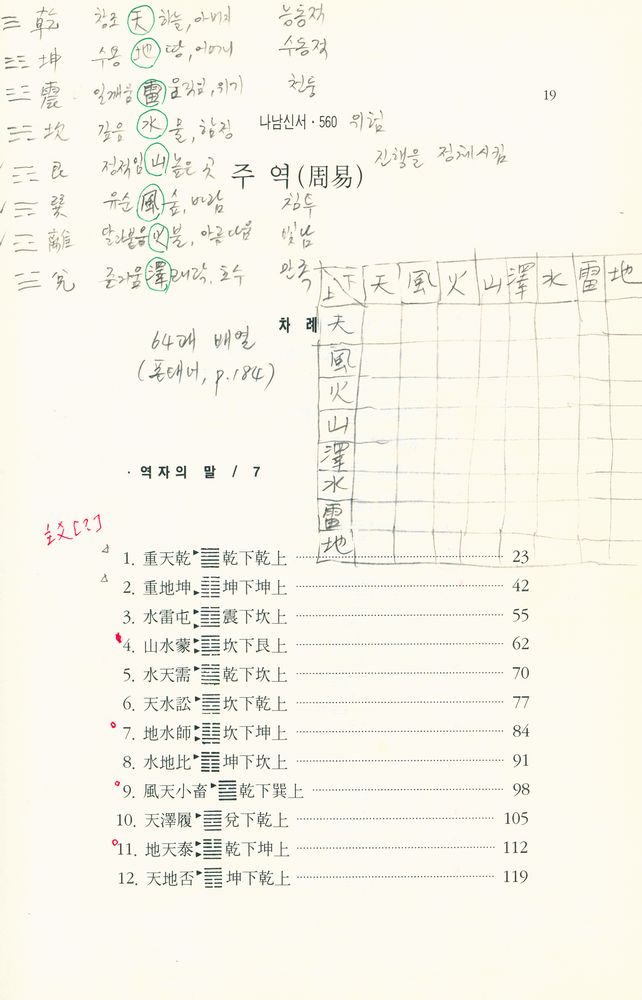 ☰ 乾 창조 天 하늘, 아버지 능동적
☷ 坤 수용 地 땅, 어머니 수동적
☳ 震 일깨움 雷 움직임, 위기 천둥
19
☵ 坎 깊음 水 물, 함정 위험
나남신서·560
☶ 艮 정적임 山 높은 곳 진행을 정체시킴
주역(周易)
☴ 巽 유순 風 숲, 바람 침투
☲ 離 달라붙음 火 불, 아름다움 빛남
☱ 兌 즐거움 澤 쾌락, 호수 만족
上 下 天 風 火 山 澤 水 雷 地
天
風
火
山
澤
水
雷
地
차례
64괘 배열
(폰태너, p.184)
· 역자의 말 / 7
爻[?]
1. 重天乾 ䷀ 乾下乾上 23
2. 重地坤 ䷁ 坤下坤上 42
3. 水雷屯 ䷂ 震下坎上 55
4. 山水蒙 ䷃ 坎下艮上 62
5. 水天需 ䷄ 乾下坎上 70
6. 天水訟 ䷅ 坎下乾上 77
7. 地水師 ䷆ 坎下坤上 84
8. 水地比 ䷇ 坤下坎上 91
9. 風天小畜 ䷈ 乾下巽上 98
10. 天澤履 ䷉ 兌下乾上 105
11. 地天泰 ䷊ 乾下坤上 112
12. 天地否 ䷋ 坤下乾上 119